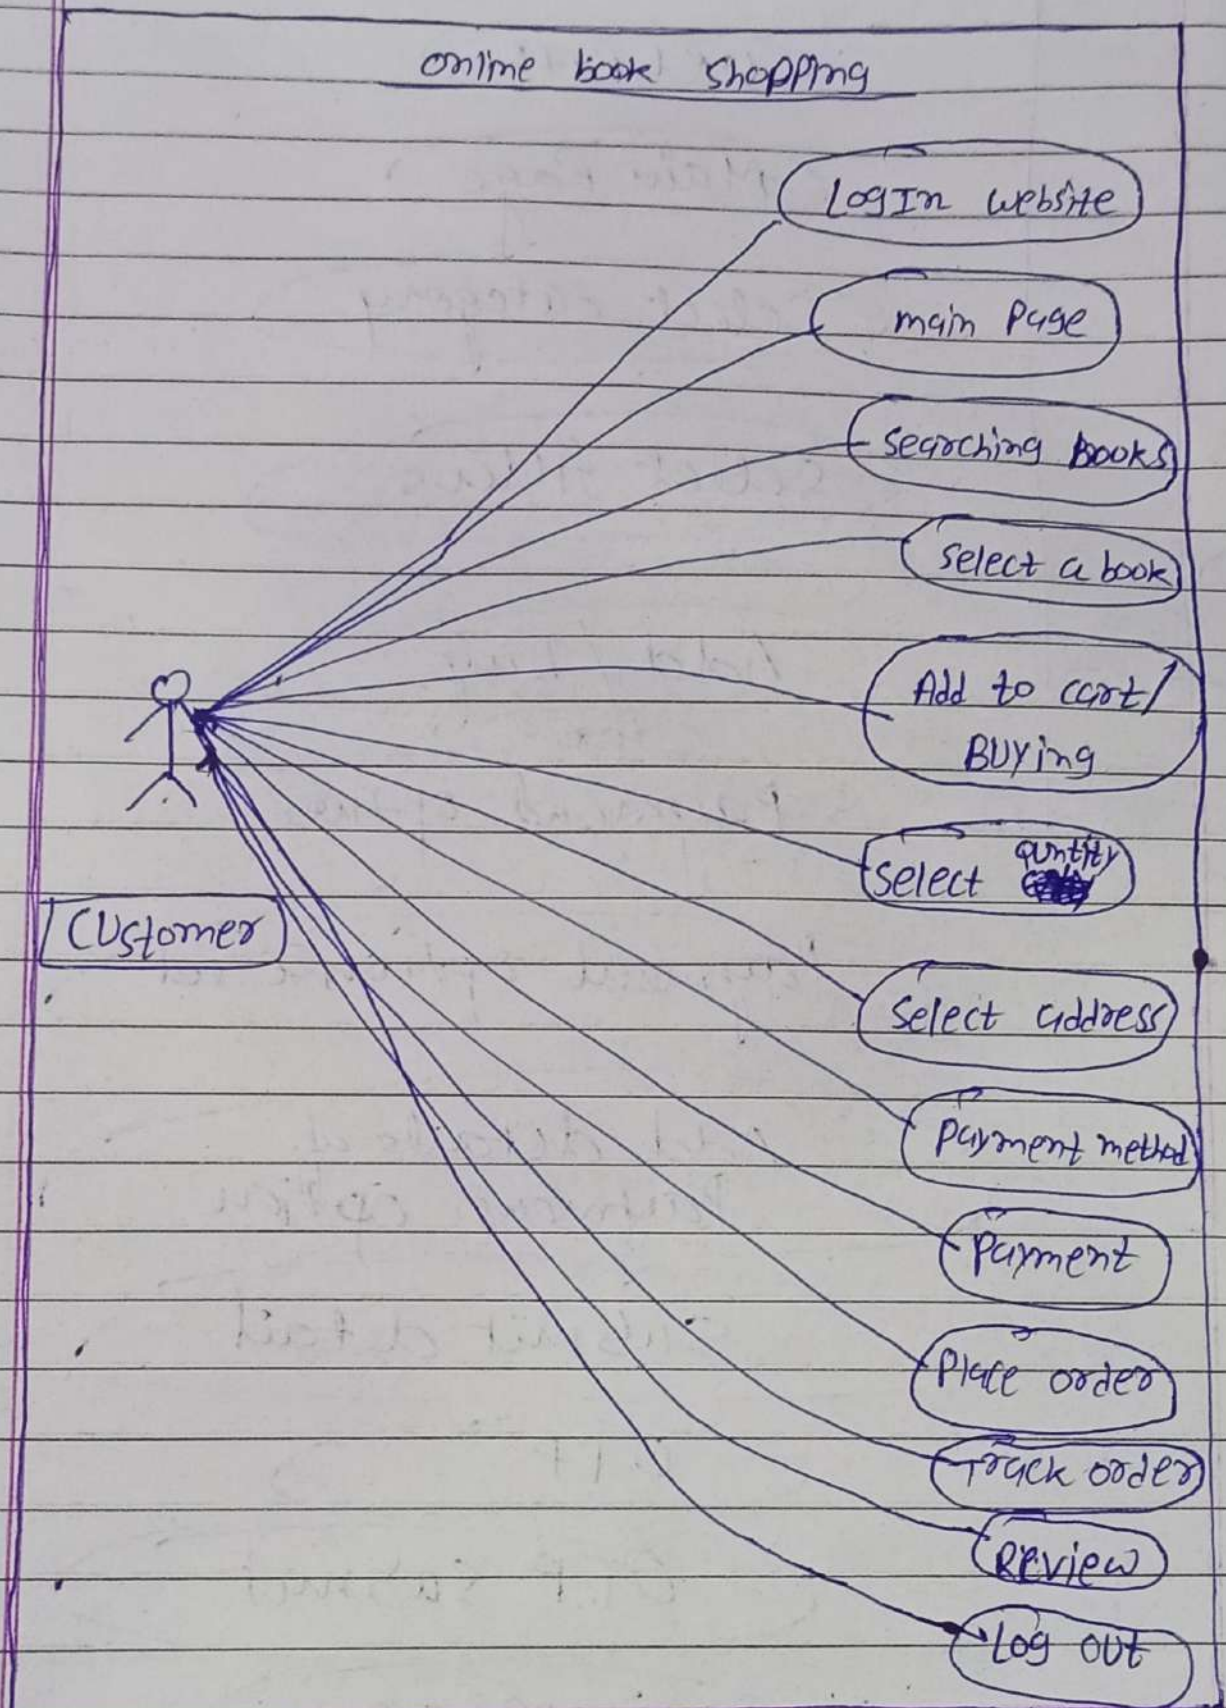 online book shopping
LogIn website
main Page
Searching Books
Select a book
Add to cart/
BUYing
Select quntity
CUstomer
Select address
Payment method
Payment
Place order
Track order
Review
Log out